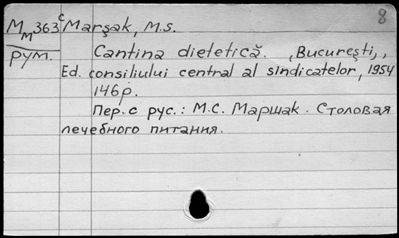 Mм363 c Marşak, M.S. 8
рум. Cantina dietetică. ,Bucureşti,,
Ed. consiliului central al sindicatelor, 1954
146p.
Пер. с рус.: М.С. Маршак. Столовая
лечебного питания.